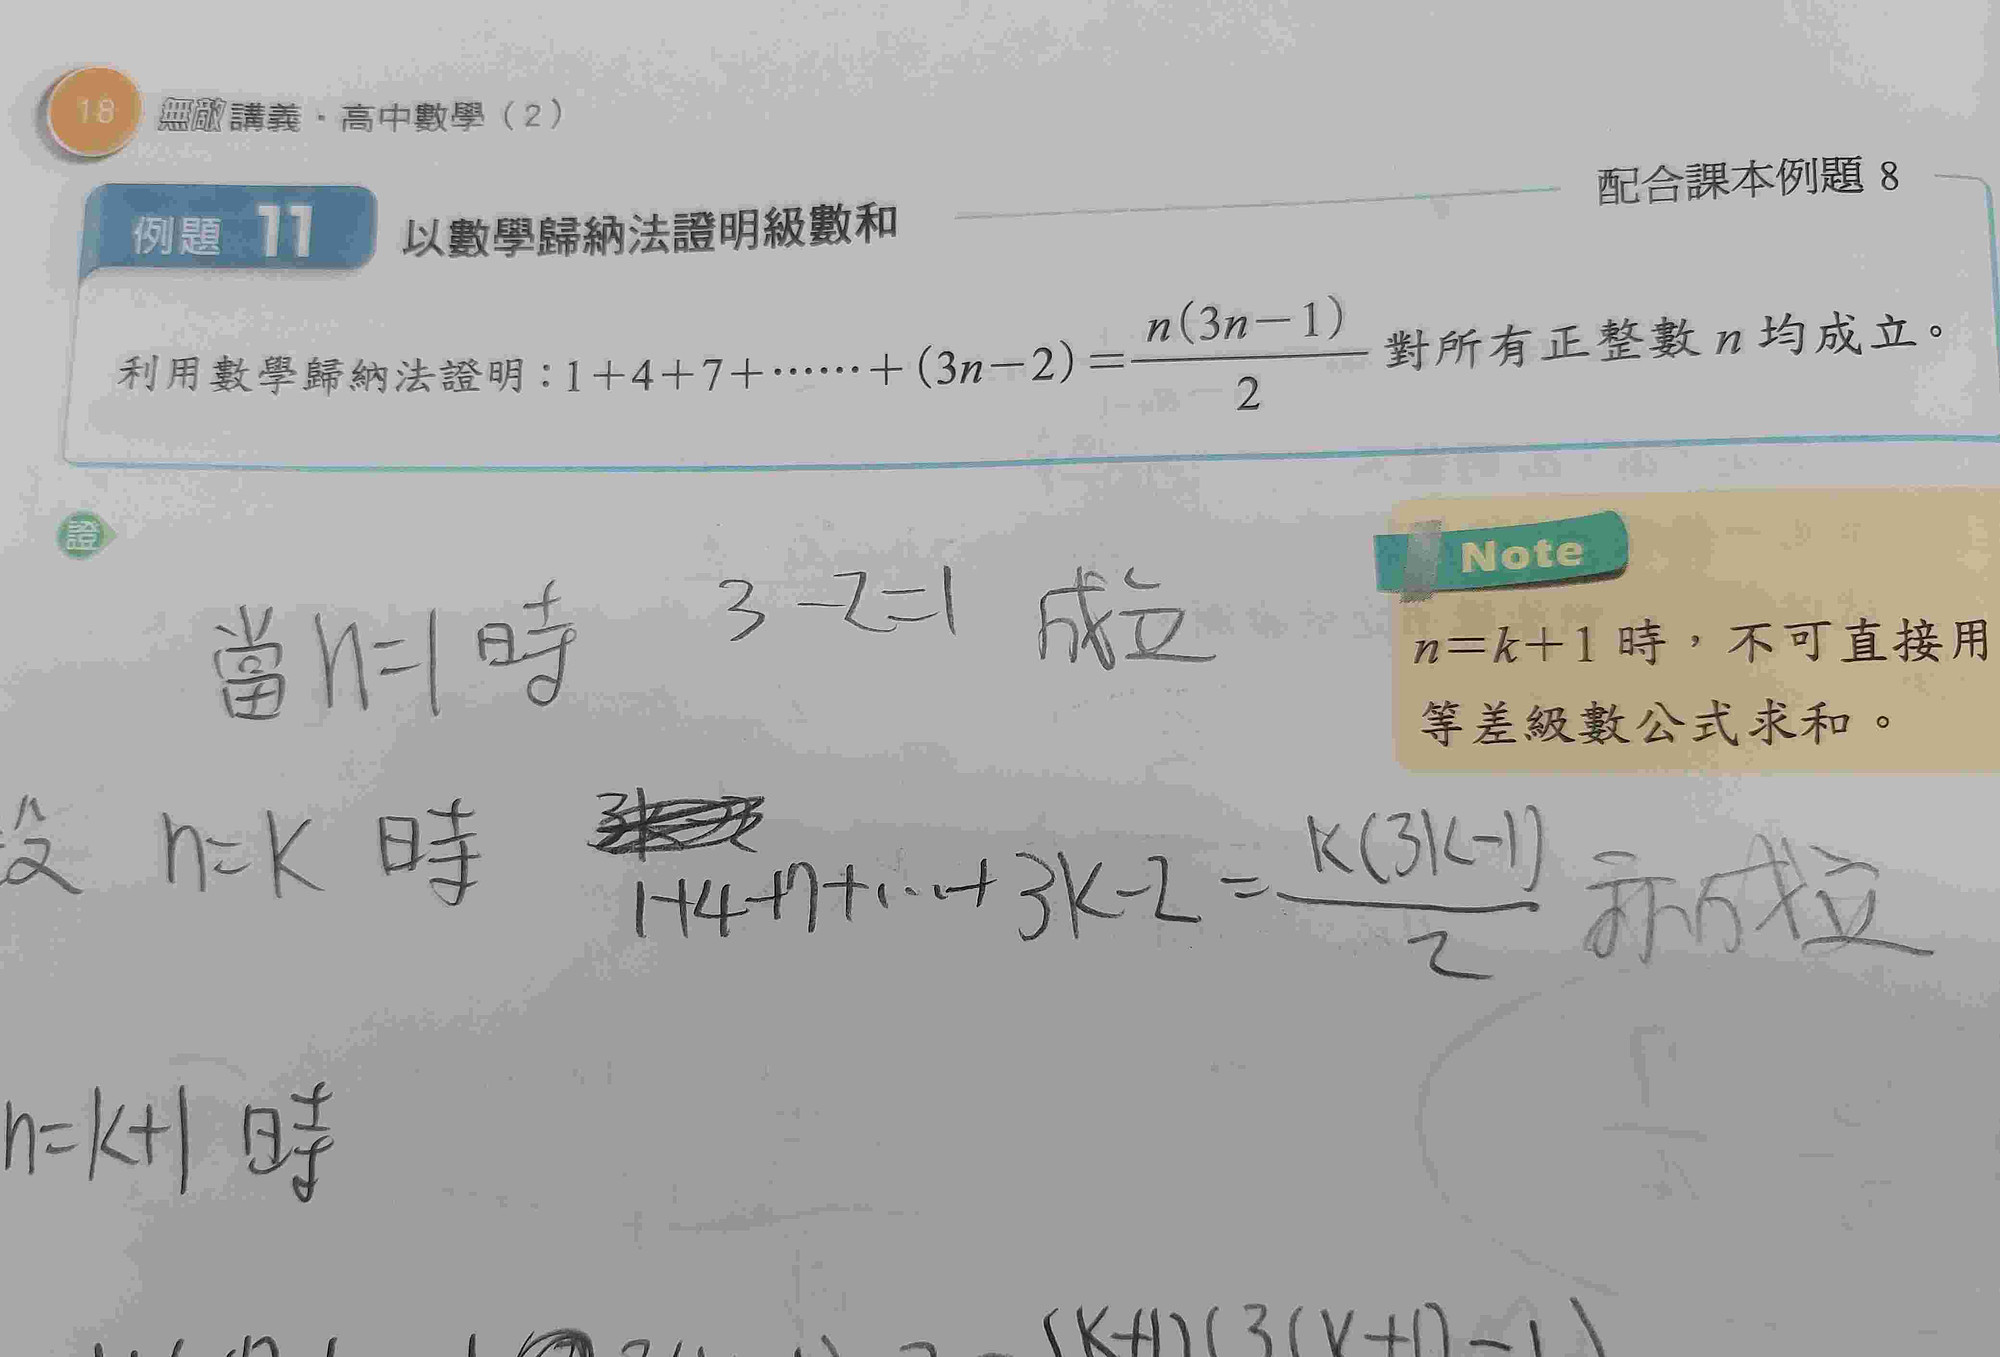 18 無敵講義·高中數學(2)
例題 11 以數學歸納法證明級數和 配合課本例題 8
利用數學歸納法證明:1+4+7+……+(3n-2)=\frac{n(3n-1)}{2} 對所有正整數 n 均成立。
證
Note
n=k+1 時,不可直接用
等差級數公式求和。
當 n=1 時 3-2=1 成立
設 n=k 時 1+4+7+...+3k-2=\frac{k(3k-1)}{2} 亦成立
n=k+1 時
(k+1)(3(k+1)-1)